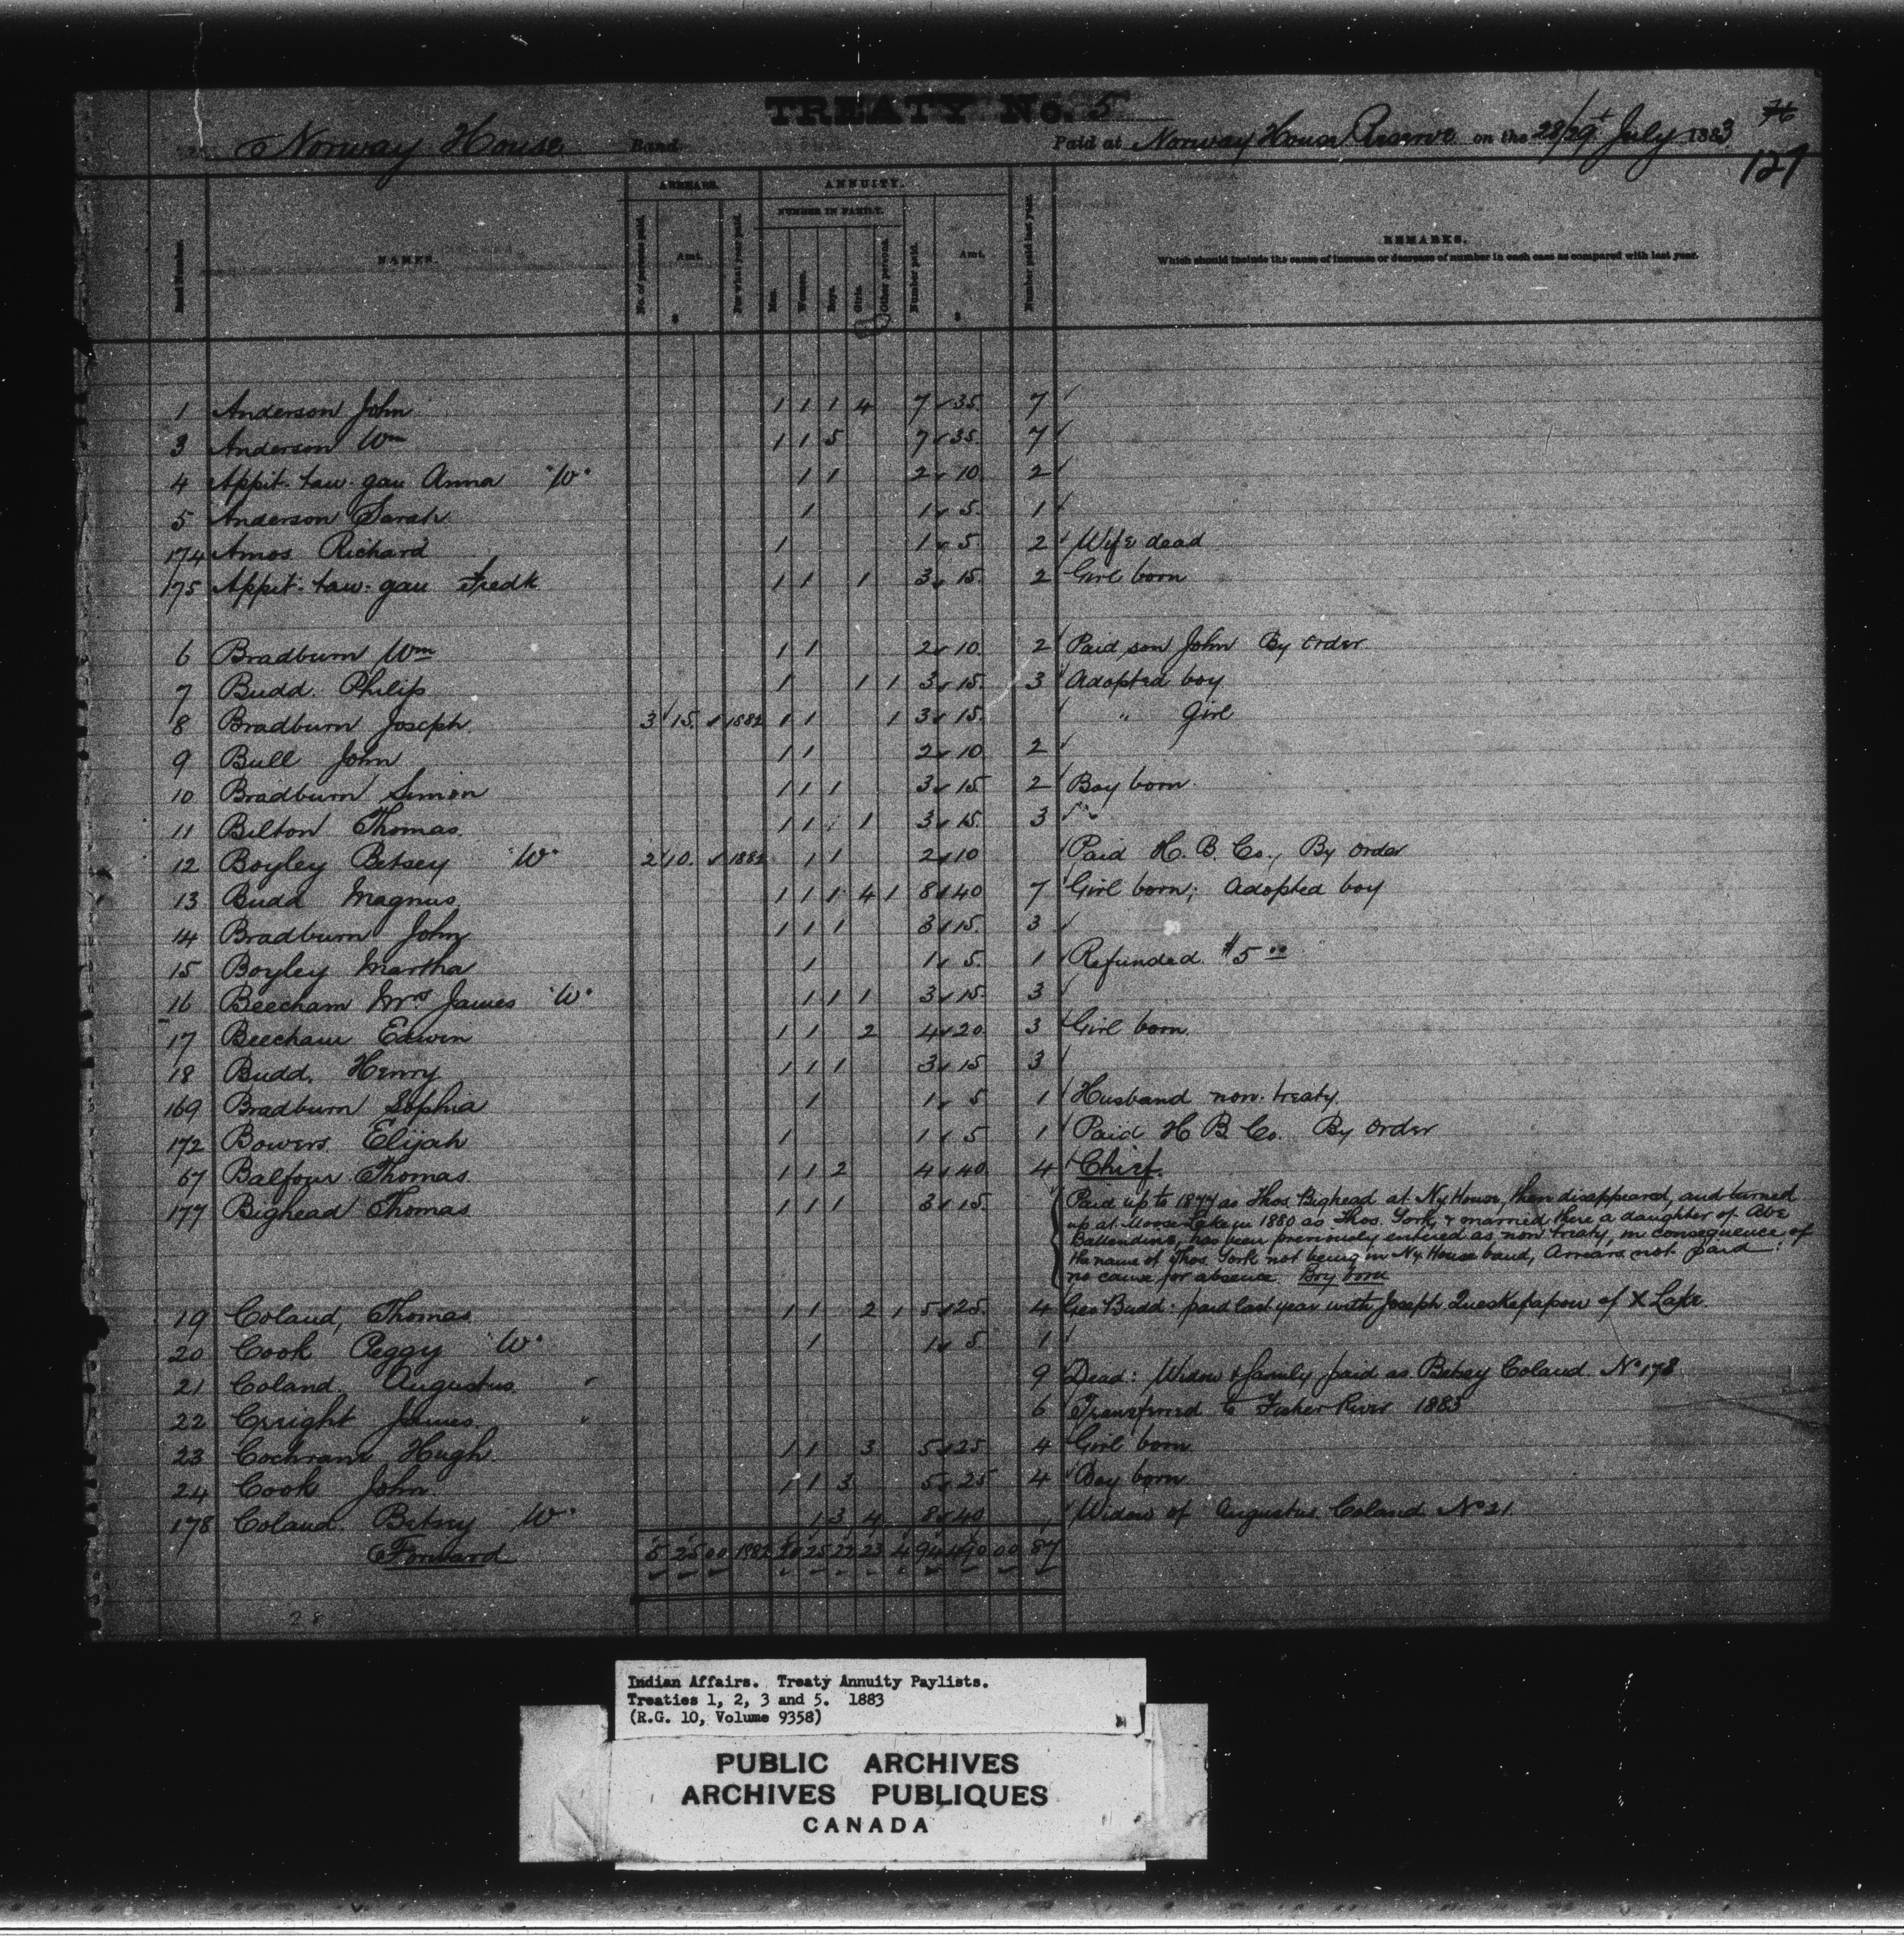 TREATY No. 5
76
Norway House Band Paid at Norway House Reserve on the 28/29t July 1883
127
ARREARS. ANNUITY.
NUMBER IN FAMILY.
Band Number. NAMES. No. of persons paid. Amt. $ For what year paid. Men. Women. Boys. Girls. Other persons. Number paid. Amt. $ Number paid last year. REMARKS.
Which should include the cause of increase or decrease of number in each case as compared with last year.
1 Anderson John 1 1 1 4 7 35. 7
3 Anderson Wm 1 1 5 7 35. 7
4 Appit-taw-gau Anna "W" 1 1 2 10. 2
5 Anderson Sarah 1 1 5. 1
174 Amos Richard 1 1 5. 2 Wife dead
175 Appit-taw-gau Fredk 1 1 1 3 15. 2 Girl born
6 Bradburn Wm 1 1 2 10. 2 Paid son John By order
7 Budd. Philip 1 1 1 3 15. 3 Adopted boy
8 Bradburn Joseph 3 15. 1882 1 1 1 3 15. " Girl
9 Bull John 1 1 2 10. 2
10 Bradburn Simon 1 1 1 3 15 2 Boy born
11 Bilton Thomas. 1 1 1 3 15. 3
12 Boyley Betsey "W" 2 10. 1882 1 1 2 10 Paid H. B. Co., By order
13 Budd Magnus. 1 1 1 4 1 8 40 7 Girl born; Adopted boy
14 Bradburn John 1 1 1 3 15. 3
15 Boyley Martha 1 1 5. 1 Refunded $5 00
16 Beecham Mrs James "W" 1 1 1 3 15. 3
17 Beecham Edwin 1 1 2 4 20 3 Girl born.
18 Budd. Henry 1 1 1 3 15 3
169 Bradburn Sophia 1 1 5 1 Husband non-treaty.
172 Bowers. Elijah 1 1 5 1 Paid H B Co. By order
67 Balfour Thomas. 1 1 2 4 40. 4 Chief.
177 Bighead Thomas 1 1 1 3 15. Paid up to 1877 as Thos Bighead at Ny House, then disappeared, and turned
up at Moose Lake in 1880 as Thos. York, & married there a daughter of Abe
Ballendine, has been previously entered as non treaty, in consequence of
the name of Thos York not being in Ny House band, Arrears not paid:
no cause for absence. Boy born
19 Coland, Thomas 1 1 2 1 5 25. 4 Geo Budd: paid last year with Joseph Queskepapow of X Lake.
20 Cook Peggy "W" 1 1 5. 1
21 Coland. Augustus. 9 Dead: Widow & family paid as Betsey Coland. No 178
22 Cright James. 6 Transferred to Fisher River 1883
23 Cochrane Hugh. 1 1 3 5 25 4 Girl born
24 Cook John. 1 1 3 5 25 4 Boy born
178 Coland. Betsey W" 1 3 4 8 40 Widow of Augustus Coland No 21.
Forward 5 25 00 1882 20 25 22 23 4 94 490 00 87
28
Indian Affairs. Treaty Annuity Paylists.
Treaties 1, 2, 3 and 5. 1883
(R.G. 10, Volume 9358)
PUBLIC ARCHIVES
ARCHIVES PUBLIQUES
CANADA